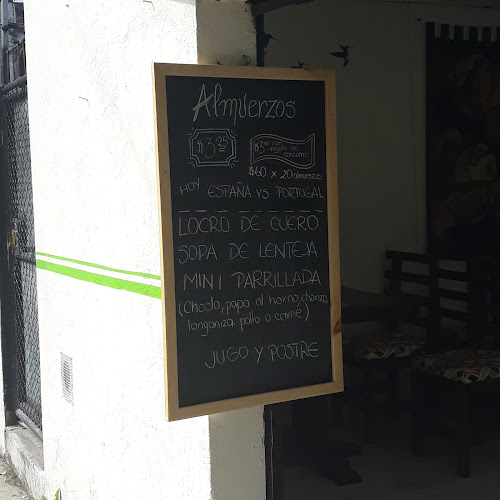 Almuerzos
$3.25
$3.00 con tarjeta de consumo
$60 x 20 almuerzos
HOY ESPAÑA VS PORTUGAL
LOCRO DE CUERO
SOPA DE LENTEJA
MINI PARRILLADA
(Choclo, papa al horno, chorizo,
longaniza, pollo o carne)
JUGO Y POSTRE